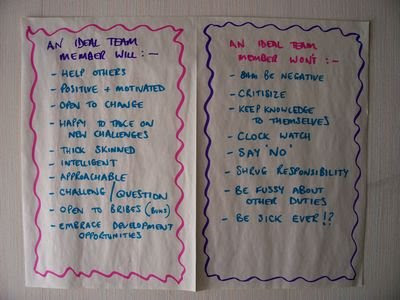 AN IDEAL TEAM
MEMBER WILL:-
- HELP OTHERS
- POSITIVE + MOTIVATED
- OPEN TO CHANGE
- HAPPY TO TAKE ON
NEW CHALLENGES
- THICK SKINNED
- INTELLIGENT
- APPROACHABLE
- CHALLENG / QUESTION
- OPEN TO BRIBES (BUNS)
- EMBRACE DEVELOPMENT
OPPORTUNITIES
AN IDEAL TEAM
MEMBER WON'T:-
- BE NEGATIVE
- CRITISIZE
- KEEP KNOWLEDGE
TO THEMSELVES
- CLOCK WATCH
- SAY 'NO'
- SHRUG RESPONSIBILITY
- BE FUSSY ABOUT
OTHER DUTIES
- BE SICK EVER!?